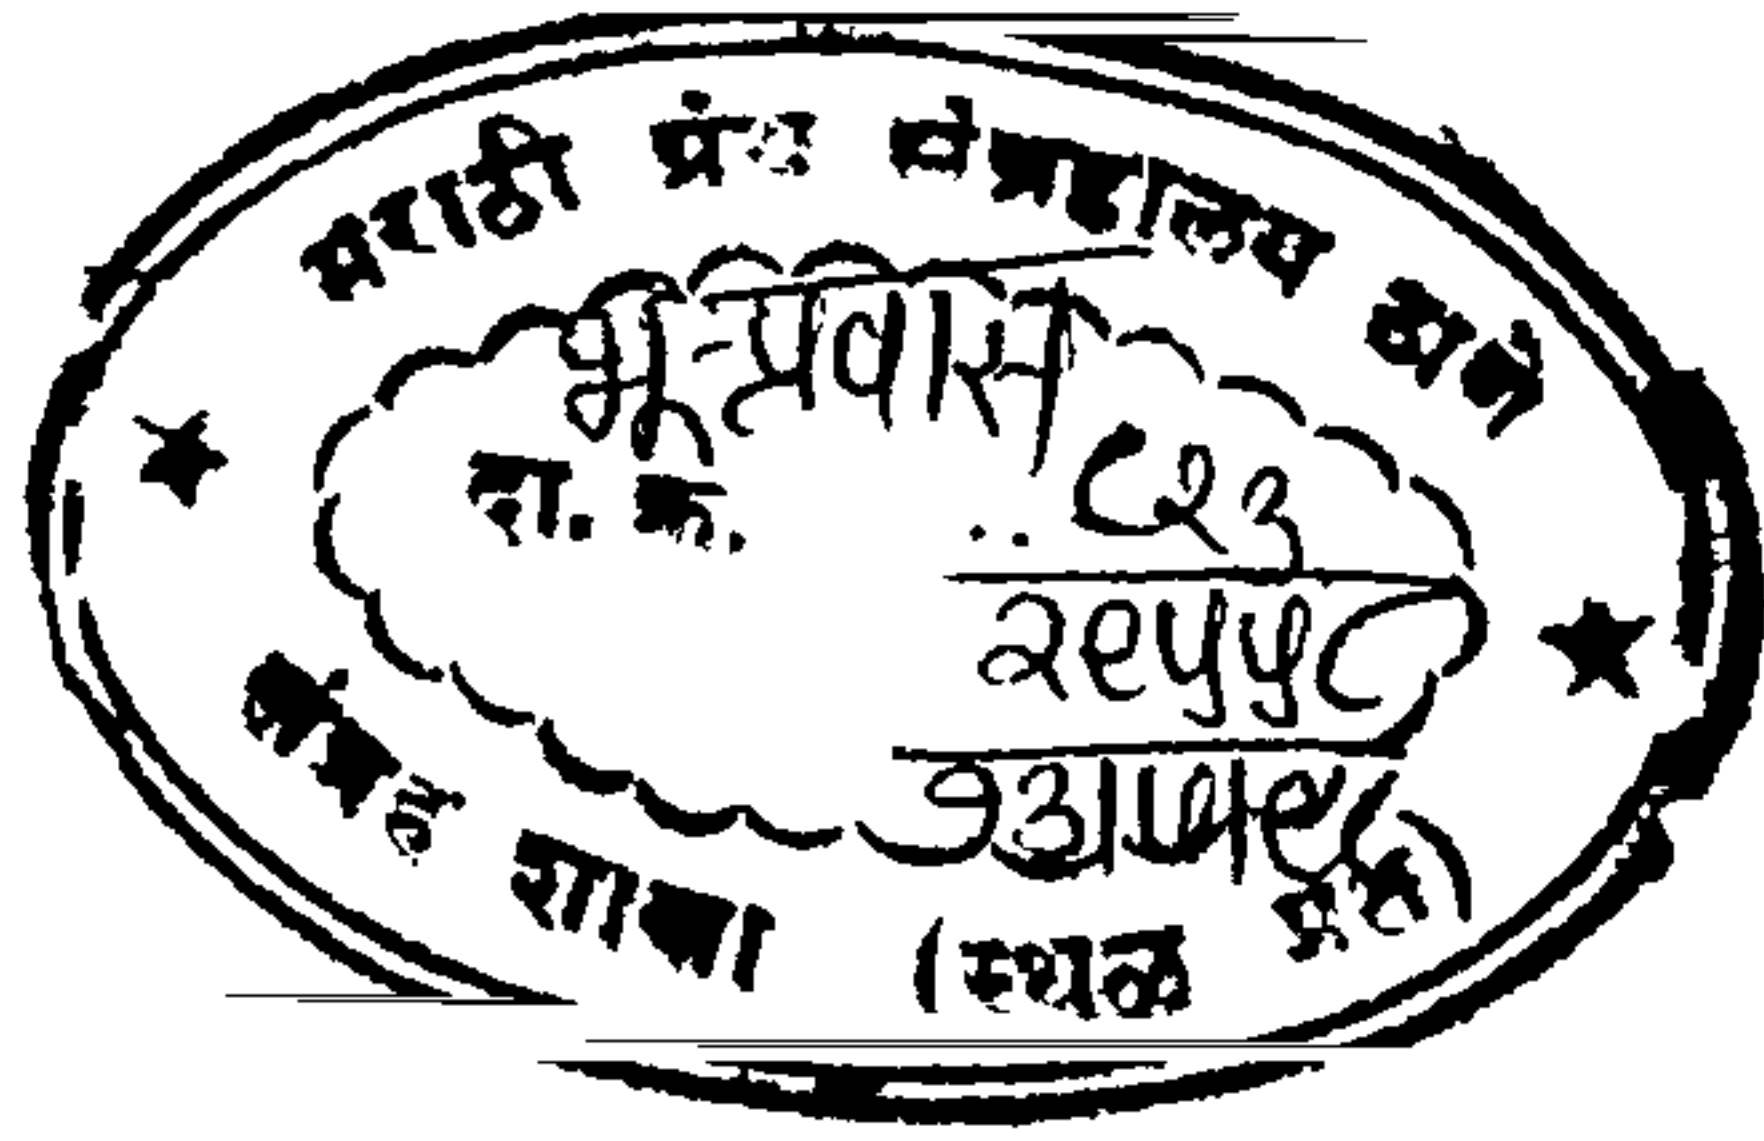 मराठी ग्रंथ संग्रहालय ठाणे
भू-प्रवास
दा. क्र. .. ८२३
२९५५८
संग्रह शाखा (स्थळ प्रत)